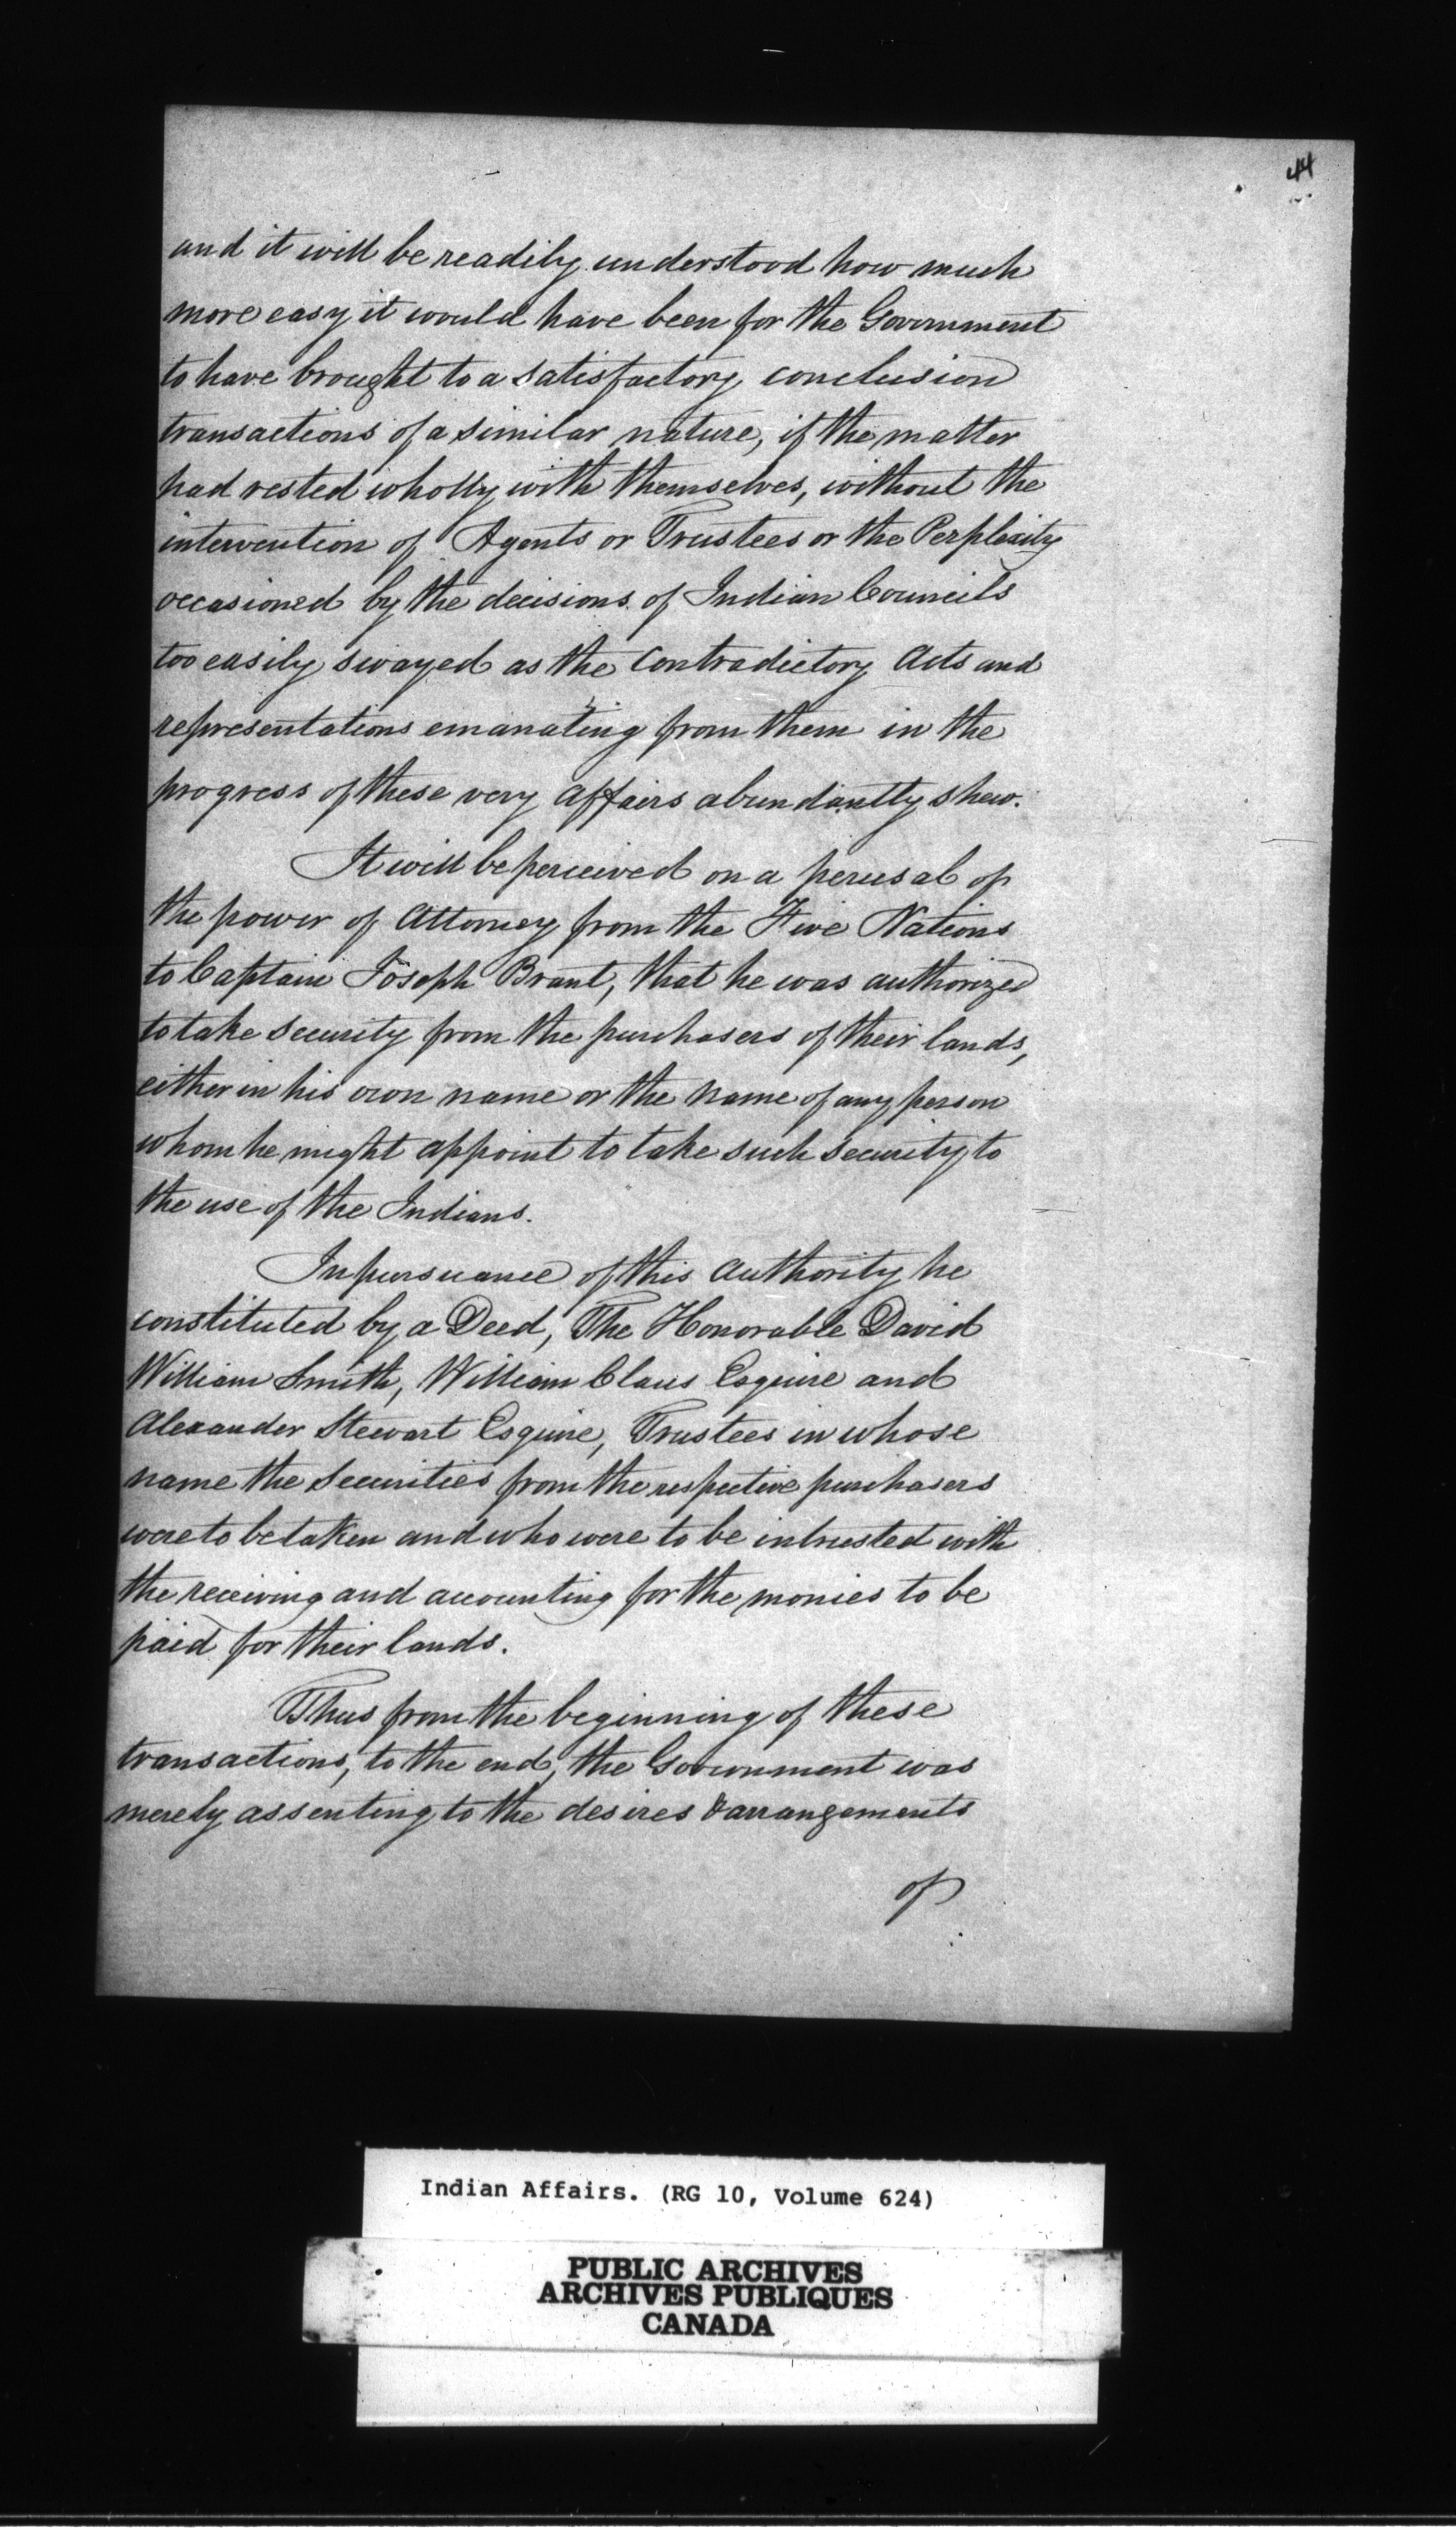 44
and it will be readily understood how much
more easy it would have been for the Government
to have brought to a satisfactory conclusion
transactions of a similar nature, if the matter
had rested wholly with themselves, without the
intervention of Agents or Trustees or the Perplexity
occasioned by the decisions of Indian Councils
too easily swayed as the Contradictory Acts and
representations emanating from them in the
progress of these very Affairs abundantly shew.
It will be perceived on a perusal of
the power of Attorney from the Five Nations
to Captain Joseph Brant, that he was authorized
to take security from the purchasers of their lands,
either in his own name or the name of any person
whom he might appoint to take such security to
the use of the Indians.
In pursuance of this Authority he
constituted by a Deed, The Honorable David
William Smith, William Claus Esquire and
Alexander Stewart Esquire, Trustees in whose
name the Securities from the respective purchasers
were to be taken and who were to be intrusted with
the receiving and accounting for the monies to be
paid for their lands.
Thus from the beginning of these
transactions, to the end, the Government was
merely assenting to the desires & arrangements
of
Indian Affairs. (RG 10, Volume 624)
PUBLIC ARCHIVES
ARCHIVES PUBLIQUES
CANADA